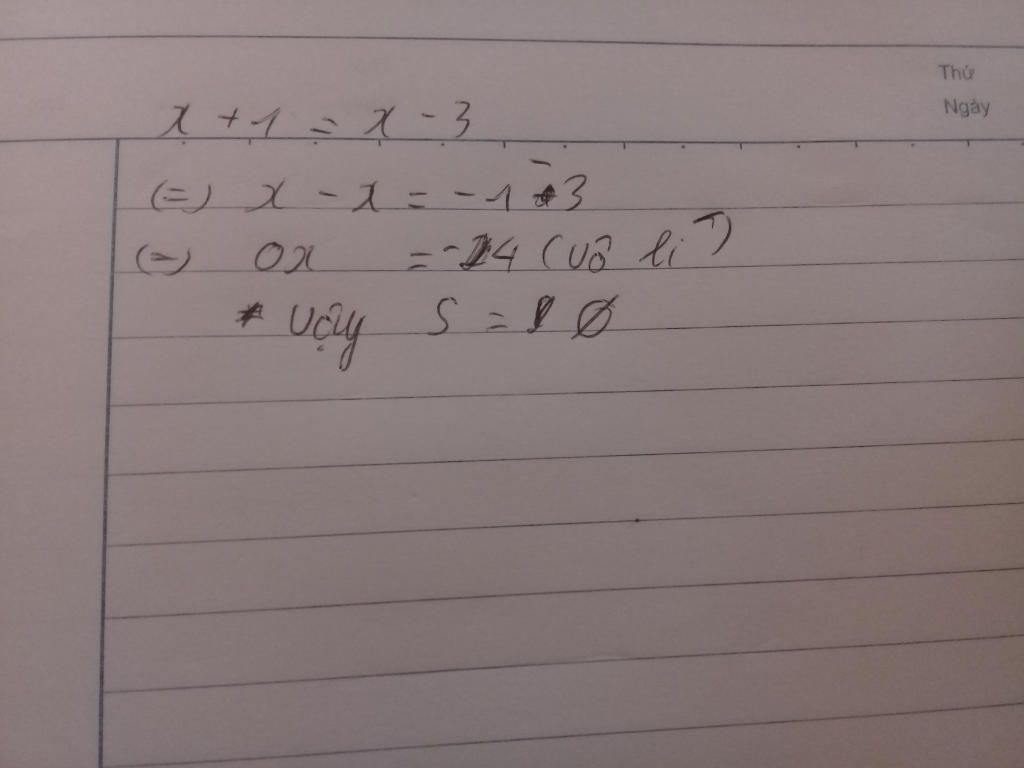 Thứ
Ngày
x + 1 = x - 3
(=) x - x = - 1 - 3
(=) 0x = -4 (vô lí)
vậy S = Ø